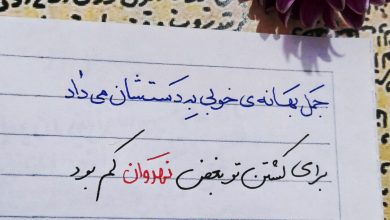 جمل بهانه‌ی خوبی بِه دَستشان می‌داد
برای کشتن تو بغض نهروان کم بود